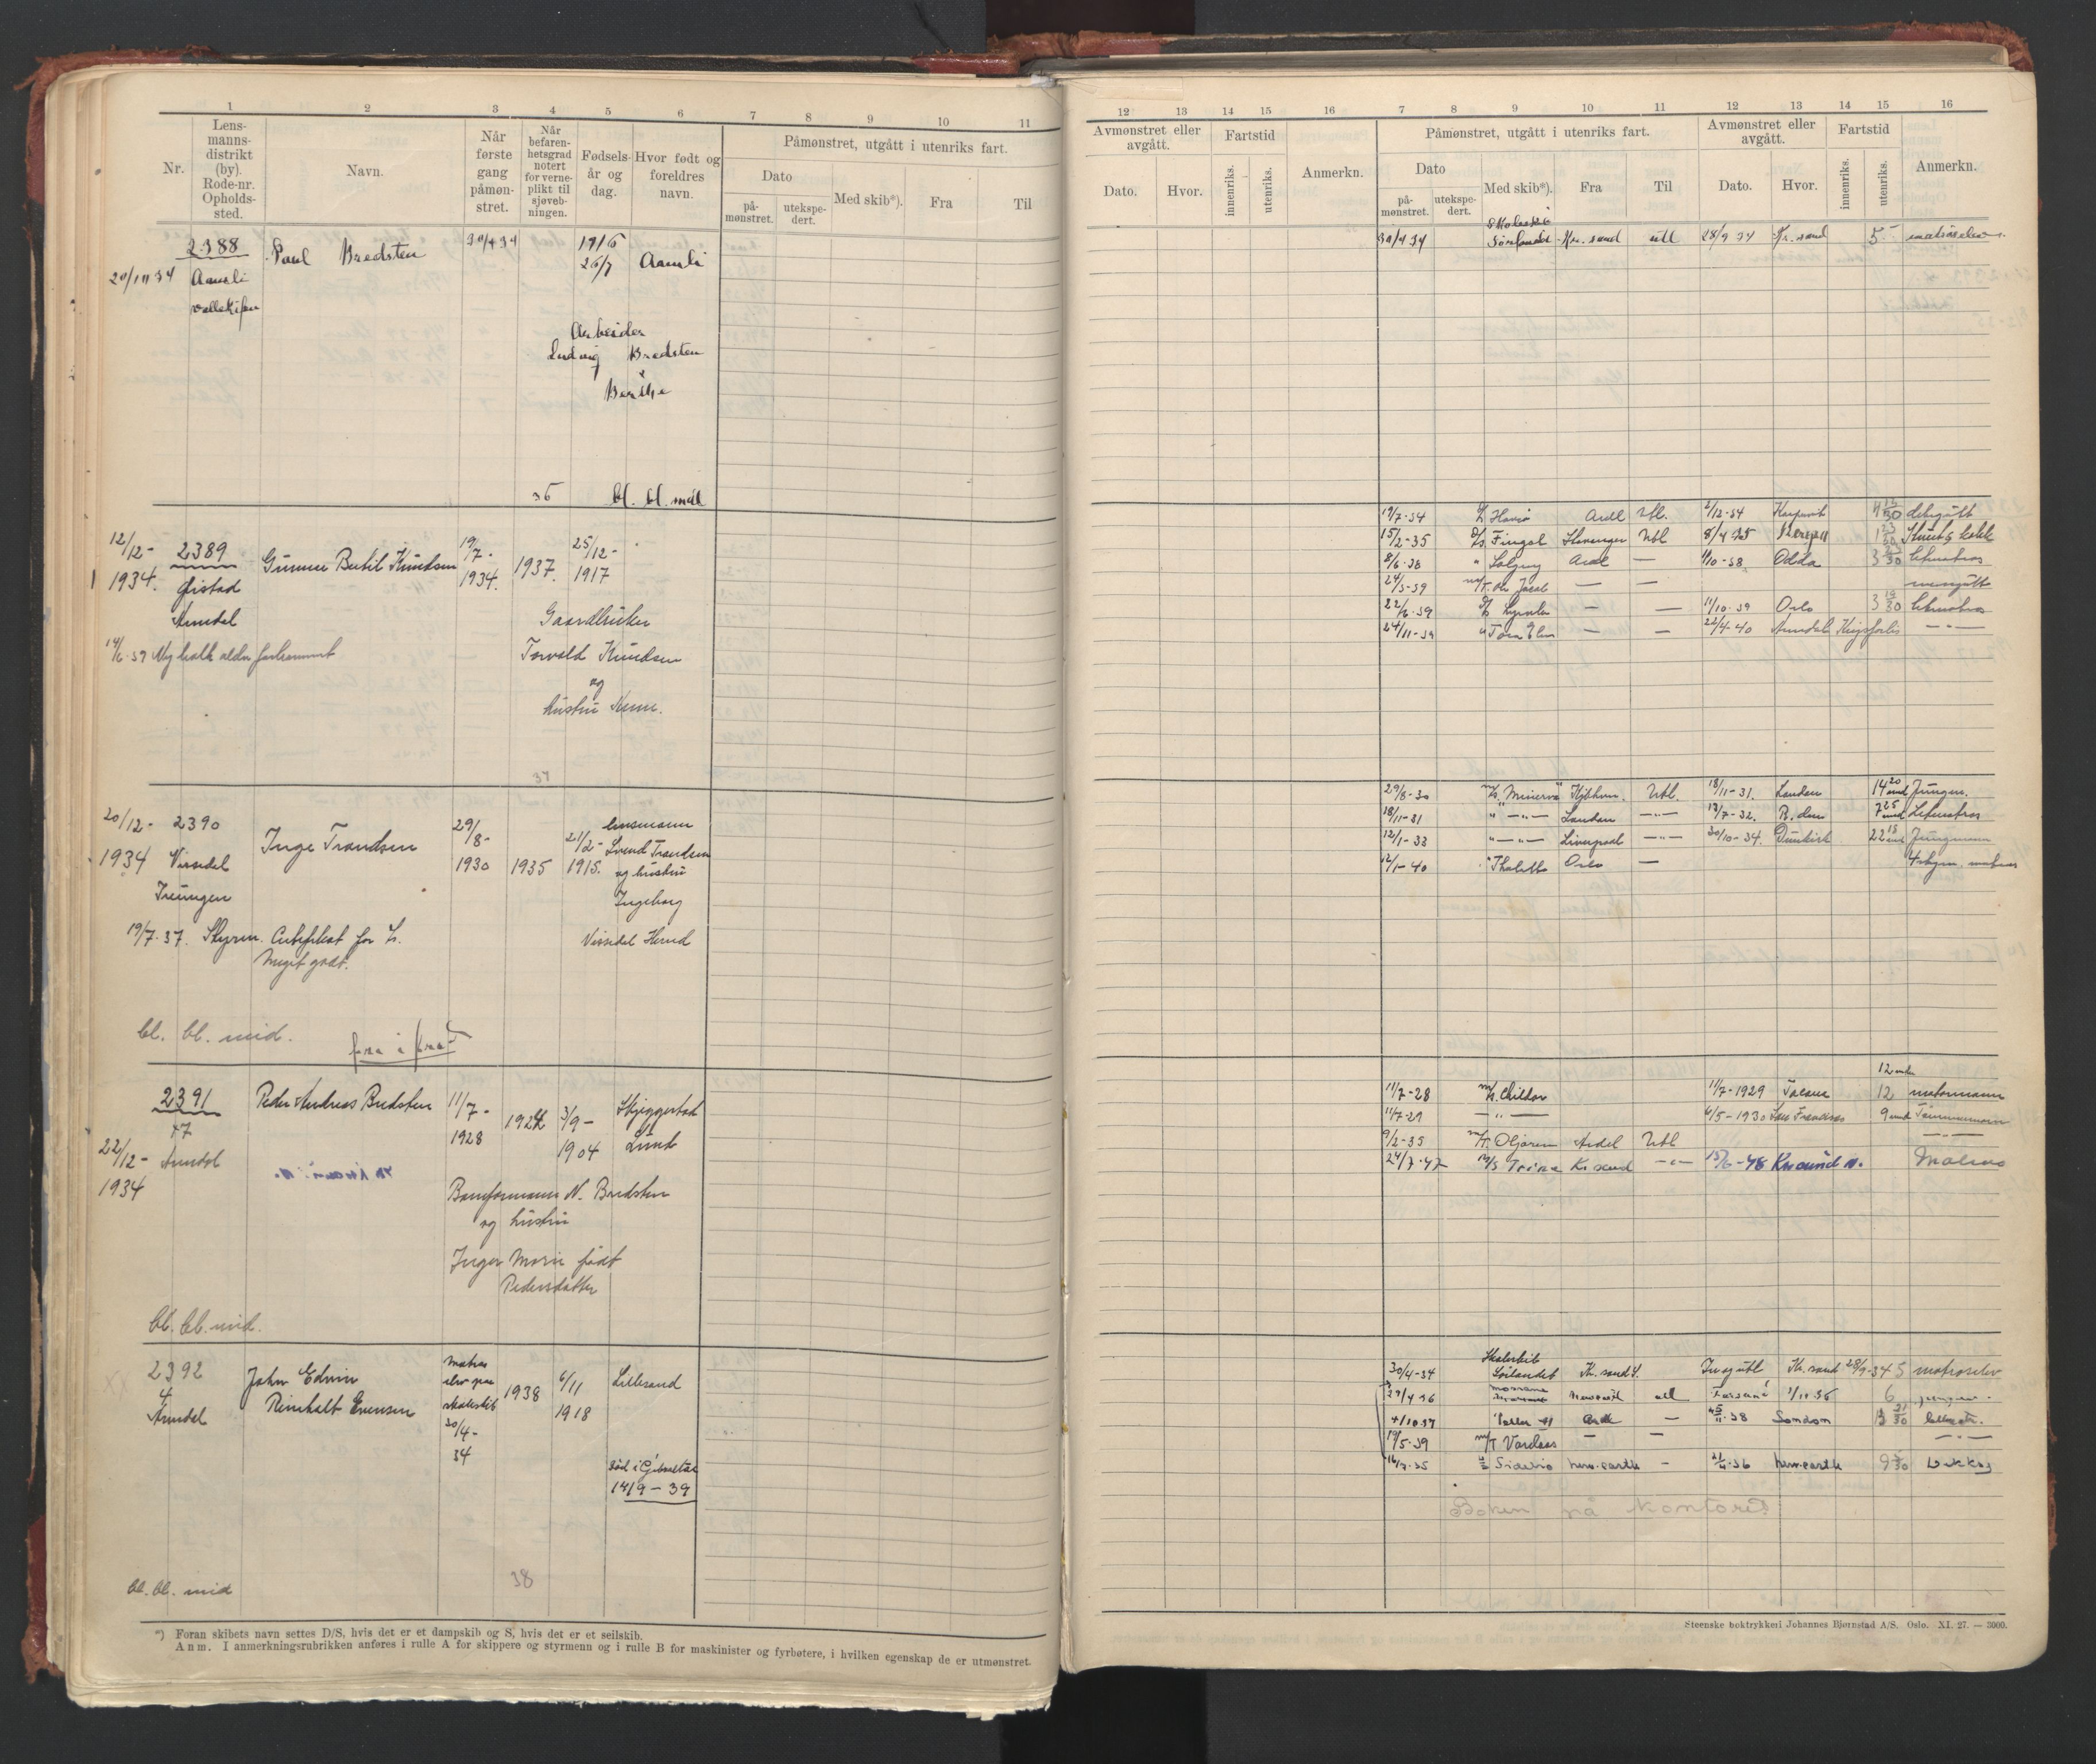 1 2 3 4 5 6 7 8 9 10 11
Nr.
Lens-
manns-
distrikt
(by).
Rode-nr.
Opholds-
sted.
Navn.
Når
første
gang
påmøn-
stret.
Når
befaren-
hetsgrad
notert
for verne-
plikt til
sjøveb-
ningen.
Fødsels-
år og
dag.
Hvor født og
foreldres
navn.
Påmønstret, utgått i utenriks fart.
Dato
på-
mønstret.
utekspe-
dert.
Med skib*).
Fra
Til
2388
20/11 34 Aamli
Paul Bredsten
30/4 34
1916
26/7
Aamli
Arbeider
Ludvig Bredsten
Berthe
36 bl. bl. mid
12/12-
1934.
2389
Øistad
Arendal
Gunnar Bertil Knudsen
19/7-
1934.
1937.
25/12-
1917
Gaardbruker
Torvald Knudsen
og
hustru
14/6-39
37
20/12-
1934
2390
Vissedal
Treungen
Inge Trondsen
29/8-
1930
1935
21/2-
1915.
lensmann
Svend Trondsen
og hustru
Ingeborg
Vissedal
19/7-37. Styrm. Certifikat for
Meget godt.
bl. bl. mid.
2391
47
Arendal
22/12-
1934
Peder Andreas Bredsten
11/7-
1928
1924
3/9-
1904
Skjeggestad
Lund
N. Bredsten
og hustru
Inger Marie født
Pedersdatter
bl. bl. mid.
2392
4
Arendal
John Edvin
Reinhalt Evensen
matros
elev paa
skoleskib
30/4-
34
1938
6/11
1918
Lillesand
død i Gibraltar
14/9-39
38
bl. bl. mid
*) Foran skibets navn settes D/S, hvis det er et dampskib og S, hvis det er et seilskib.
Anm. I anmerkningsrubrikken anføres i rulle A for skippere og styrmenn og i rulle B for maskinister og fyrbøtere, i hvilken egenskap de er utmønstret.
12 13 14 15 16 7 8 9 10 11 12 13 14 15 16
Avmønstret eller
avgått.
Dato.
Hvor.
Fartstid
innenriks.
utenriks.
Anmerkn.
Påmønstret, utgått i utenriks fart.
Dato
på-
mønstret.
utekspe-
dert.
Med skib*).
Fra
Til
Avmønstret eller
avgått.
Dato.
Hvor.
Fartstid
innenriks.
utenriks.
Anmerkn.
Skoleskib
30/4 34 Sørlandet Kr. sand utl 28/9 34 Kr. sand 5 matroselev
19/7-34 Ardl Utl. 2/12-34
15/2-35 Fingal Stavanger Utbl 8/4 35
8/6-38 " Solguy Ardl — 1/10-38 Odda 3 Letmatros
24/3-39 — —
22/6-39 — — 11/10-39 Oslo 3 Letmatros
24/11-39 " — — 22/4-40 Arendal — " —
29/8-30 M/s. Minerva Kjøbhvn. Utl. 18/11-31. London 14 20 mnd Jungm.
18/11-31 " — " — London — " — 12/7-32. 7 25 mnd Letmatros
12/1-33 — " — Liverpool — " — 30/10-34. Dunkirk 22 18 mnd Jungmann
12/1-40 " Thaletto Oslo —
12 mdr
11/7-28 M/s. Childar 11/7-1929 12 motormann
11/7-29 — " — 6/5-1930 San Francisco 9 mnd Tømmermann
9/2-35 M/T. Oljaren Ardel Utbl — " —
24/7-47 M/S Trina Kr sand — " — 15/6-48 Krsund N. Matros
Skoleskib
30/4-34 Sørlandet Kr. sand S. Inngått Kr. sand 28/9-34 5 matroselev
29/4 36 Newcastle utl 1/11 36 6
4/10 37 — 38 London
19/5-39 M/T Vardaas — — — " —
16/7-35 Newcastle — 36 Newcastle 9 Dekksg
Boken på Kontoret
Steenske boktrykkeri Johannes Bjørnstad A/S. Oslo. XI. 27. — 3000.